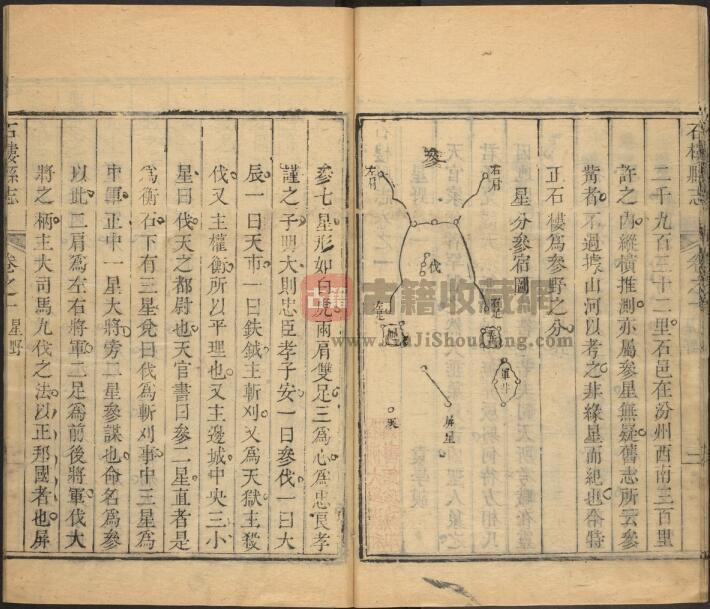 二千九百三十二里石邑在汾州西南三百里
許之內縱橫推測亦屬參星無疑舊志所云參
觜者不過據山河以考之非緣星而紀也今特
正石樓為參野之分
星分參宿圖
參
右肩
左肩
伐
右足
左足
軍井
屏星
厠
石樓縣志
參七星形如白虎兩肩雙足三為心為忠良孝
謹之子明大則忠臣孝子安一曰參伐一曰大
辰一曰天市一曰鈇鉞主斬刈又為天獄主殺
伐又主權衡所以平理也又主邊城中央三小
星曰伐天之都尉也天官書曰參二星直者是
為衡石下有三星兌曰伐為斬刈事中三星為
中軍正中一星大將旁二星參謀也命名為參
以此二肩為左右將軍二足為前後將軍伐大
將之柄主大司馬九伐之法以正邦國者也屏
石樓縣志
卷之一
星野
古籍
古籍收藏網
www.GuJiShouCang.com